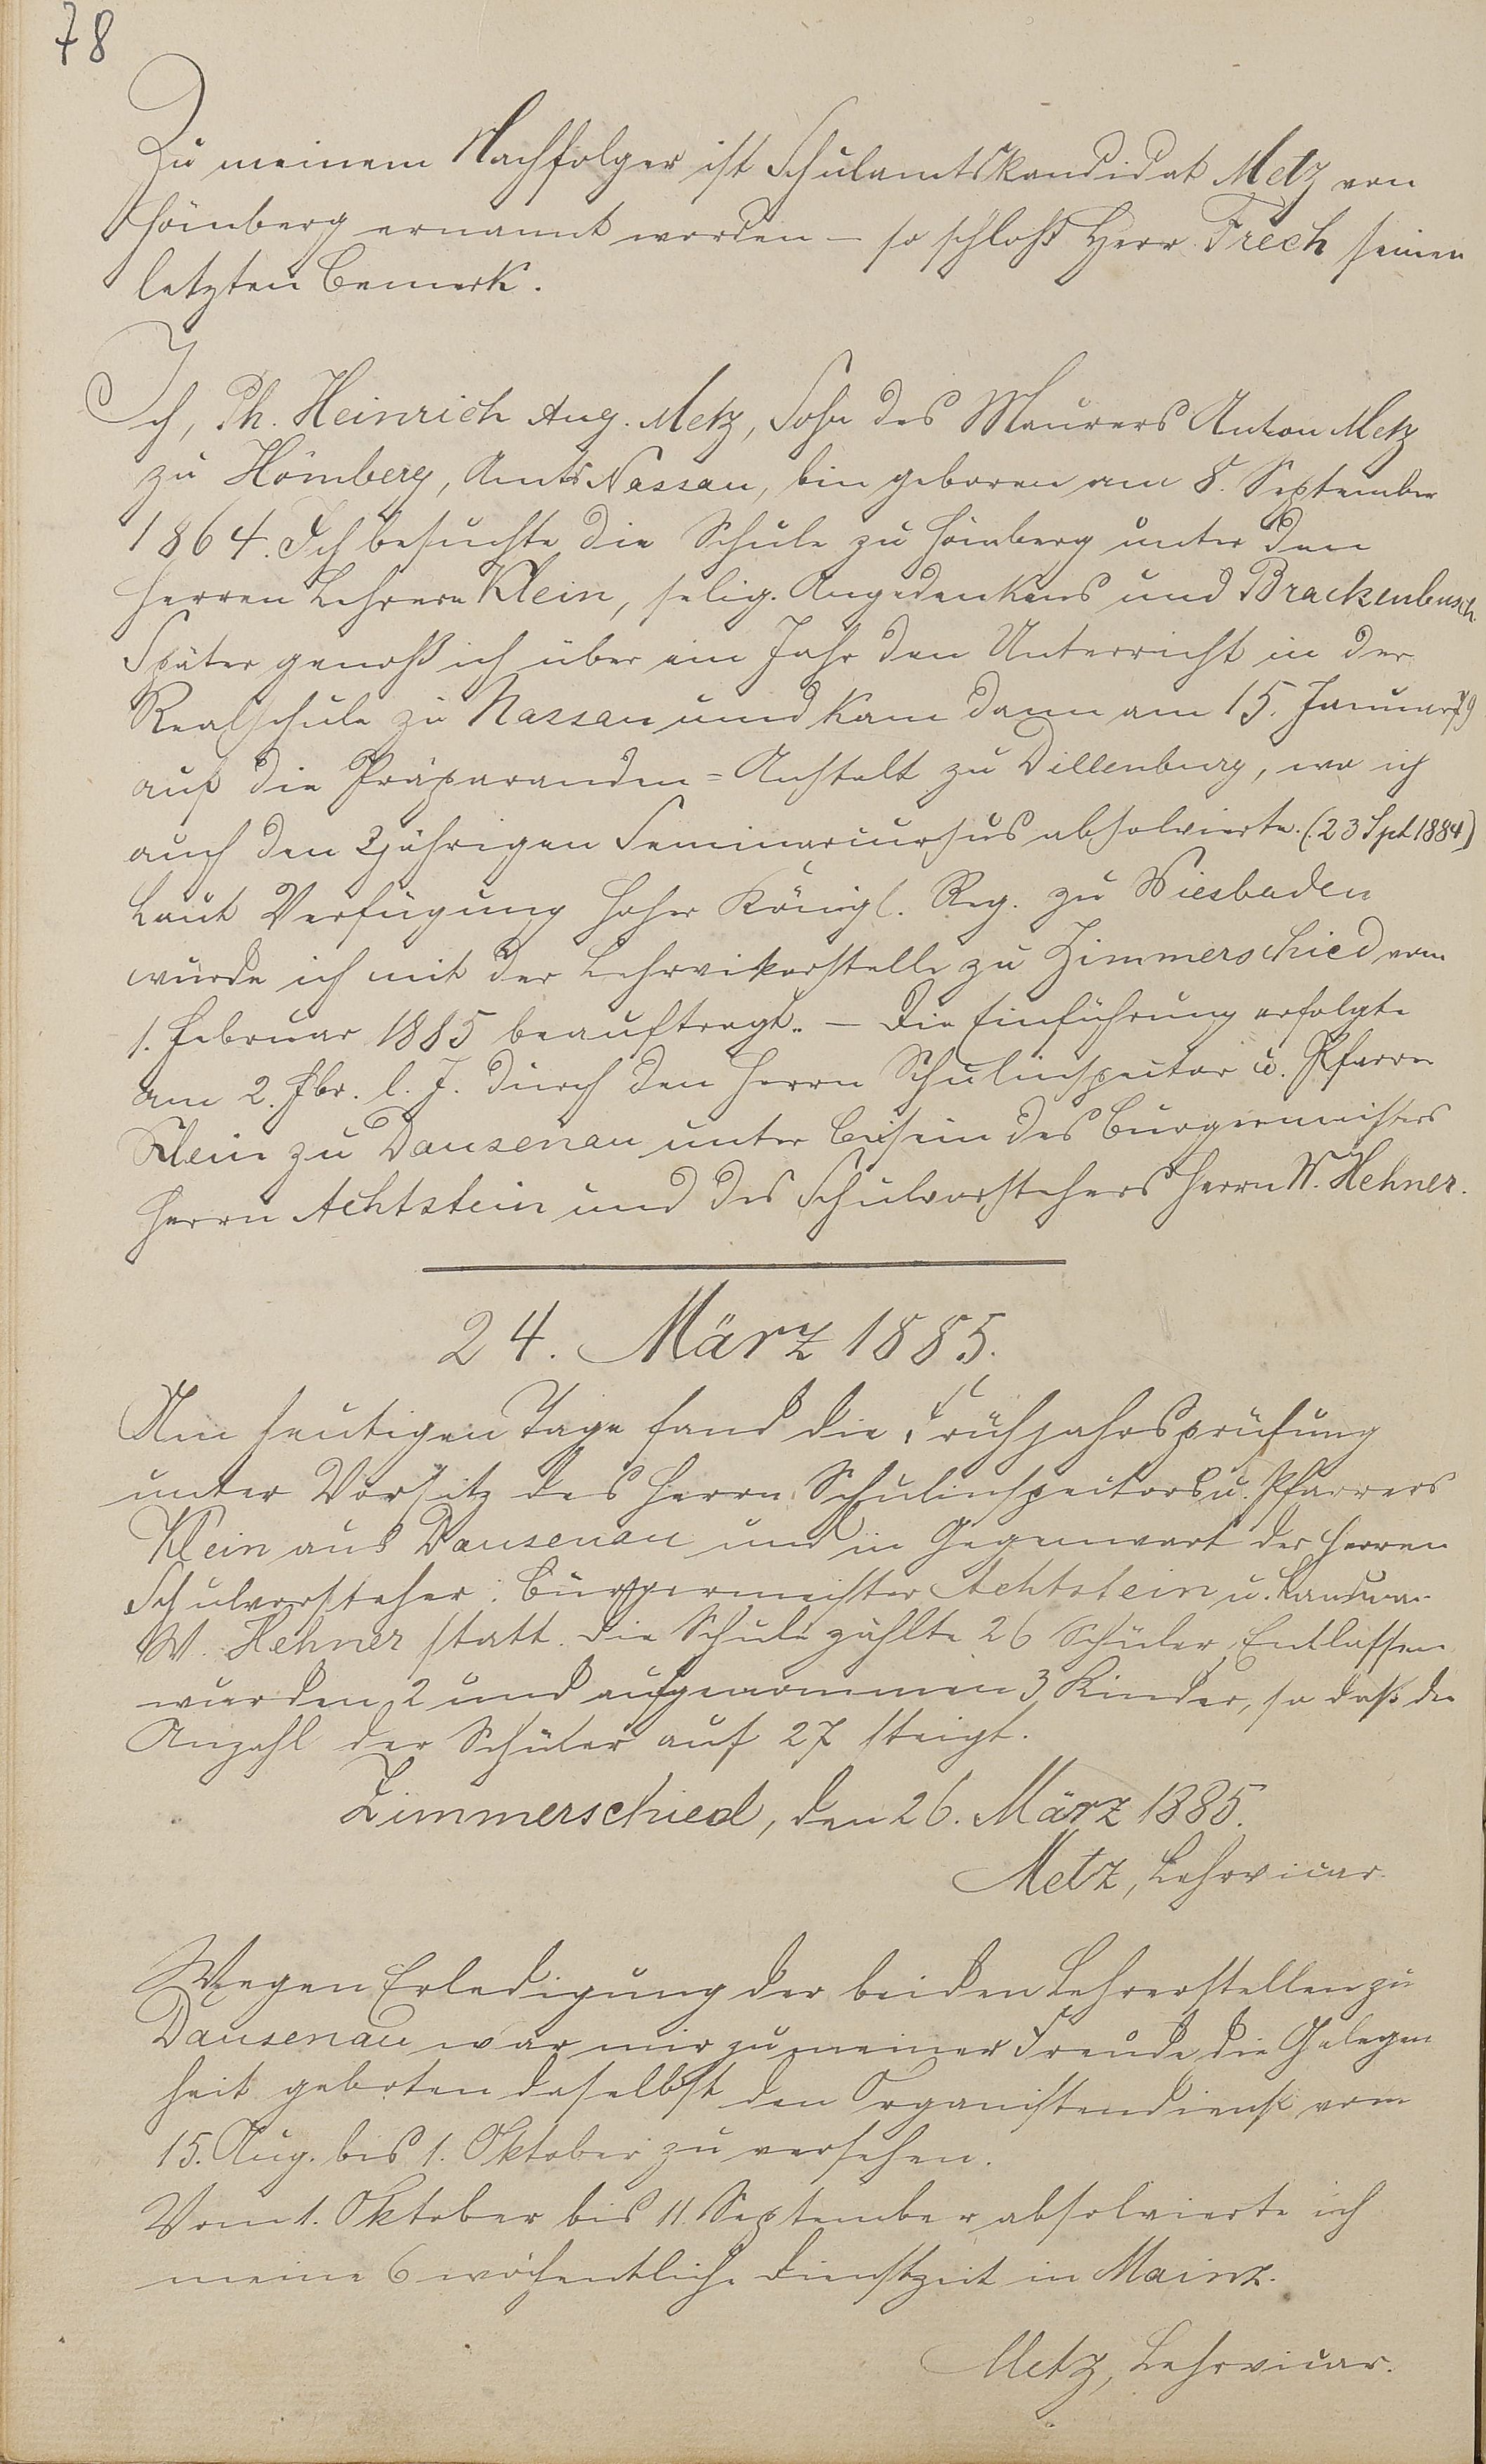 78
Zu meinem Nachfolger ist Schulamtskandidat Metz von
Hömberg ernannt worden – so schloß Herr Frech seinen
letzten Bemerk.
Ich, Ph. Heinrich Aug. Metz, Sohn des Maurers Anton Metz
zu Hömberg, Amts Nassau, bin geboren am 8. September
1864. Ich besuchte die Schule zu Hömberg unter den
Herren Lehrern Klein, selig. Angedenkens und Brackenbusch.
Später genoß ich über ein Jahr den Unterricht in der
Realschule zu Nassau und kam dann am 15. Januar 79
auf die Präparanden-Anstalt zu Dillenburg, wo ich
auch den 3jährigen Seminarcursus absolvierte. (23 Spt. 1884)
Laut Verfügung hoher Königl. Reg. zu Wiesbaden
wurde ich mit der Lehrvikarstelle zu Zimmerschied vom
1. Februar 1885 beauftragt. – Die Einführung erfolgte
am 2. Fbr. l. J. durch den Herrn Schulinspector u. Pfarrer
Klein zu Dausenau unter Beisein des Bürgermeisters
Herrn Achtstein und des Schulvorstehers Herrn W. Hehner.
24. März 1885.
Am heutigen Tage fand die Frühjahrsprüfung
unter Vorsitz des Herrn Schulinspectors u. Pfarrers
Klein aus Dausenau und in Gegenwart der Herren
Schulvorsteher: Bürgermeister Achtstein u.
W. Hehner statt. Die Schule zählte 26 Schüler. Entlassen
wurden 2 und aufgenommen 3 Kinder, so daß die
Anzahl der Schüler auf 27 steigt.
Zimmerschied, den 26. März 1885.
Metz, Lehrvicar.
Wegen Erledigung der beiden Lehrerstellen zu
Dausenau war mir zu meiner Freude die Gelegen
heit geboten daselbst den Organistendienst vom
15. Aug. bis 1. Oktober zu versehen.
Vom 1. Oktober bis 11. September absolvierte ich
meine 6 wöchentliche Dienstzeit in Mainz.
Metz, Lehrvicar.